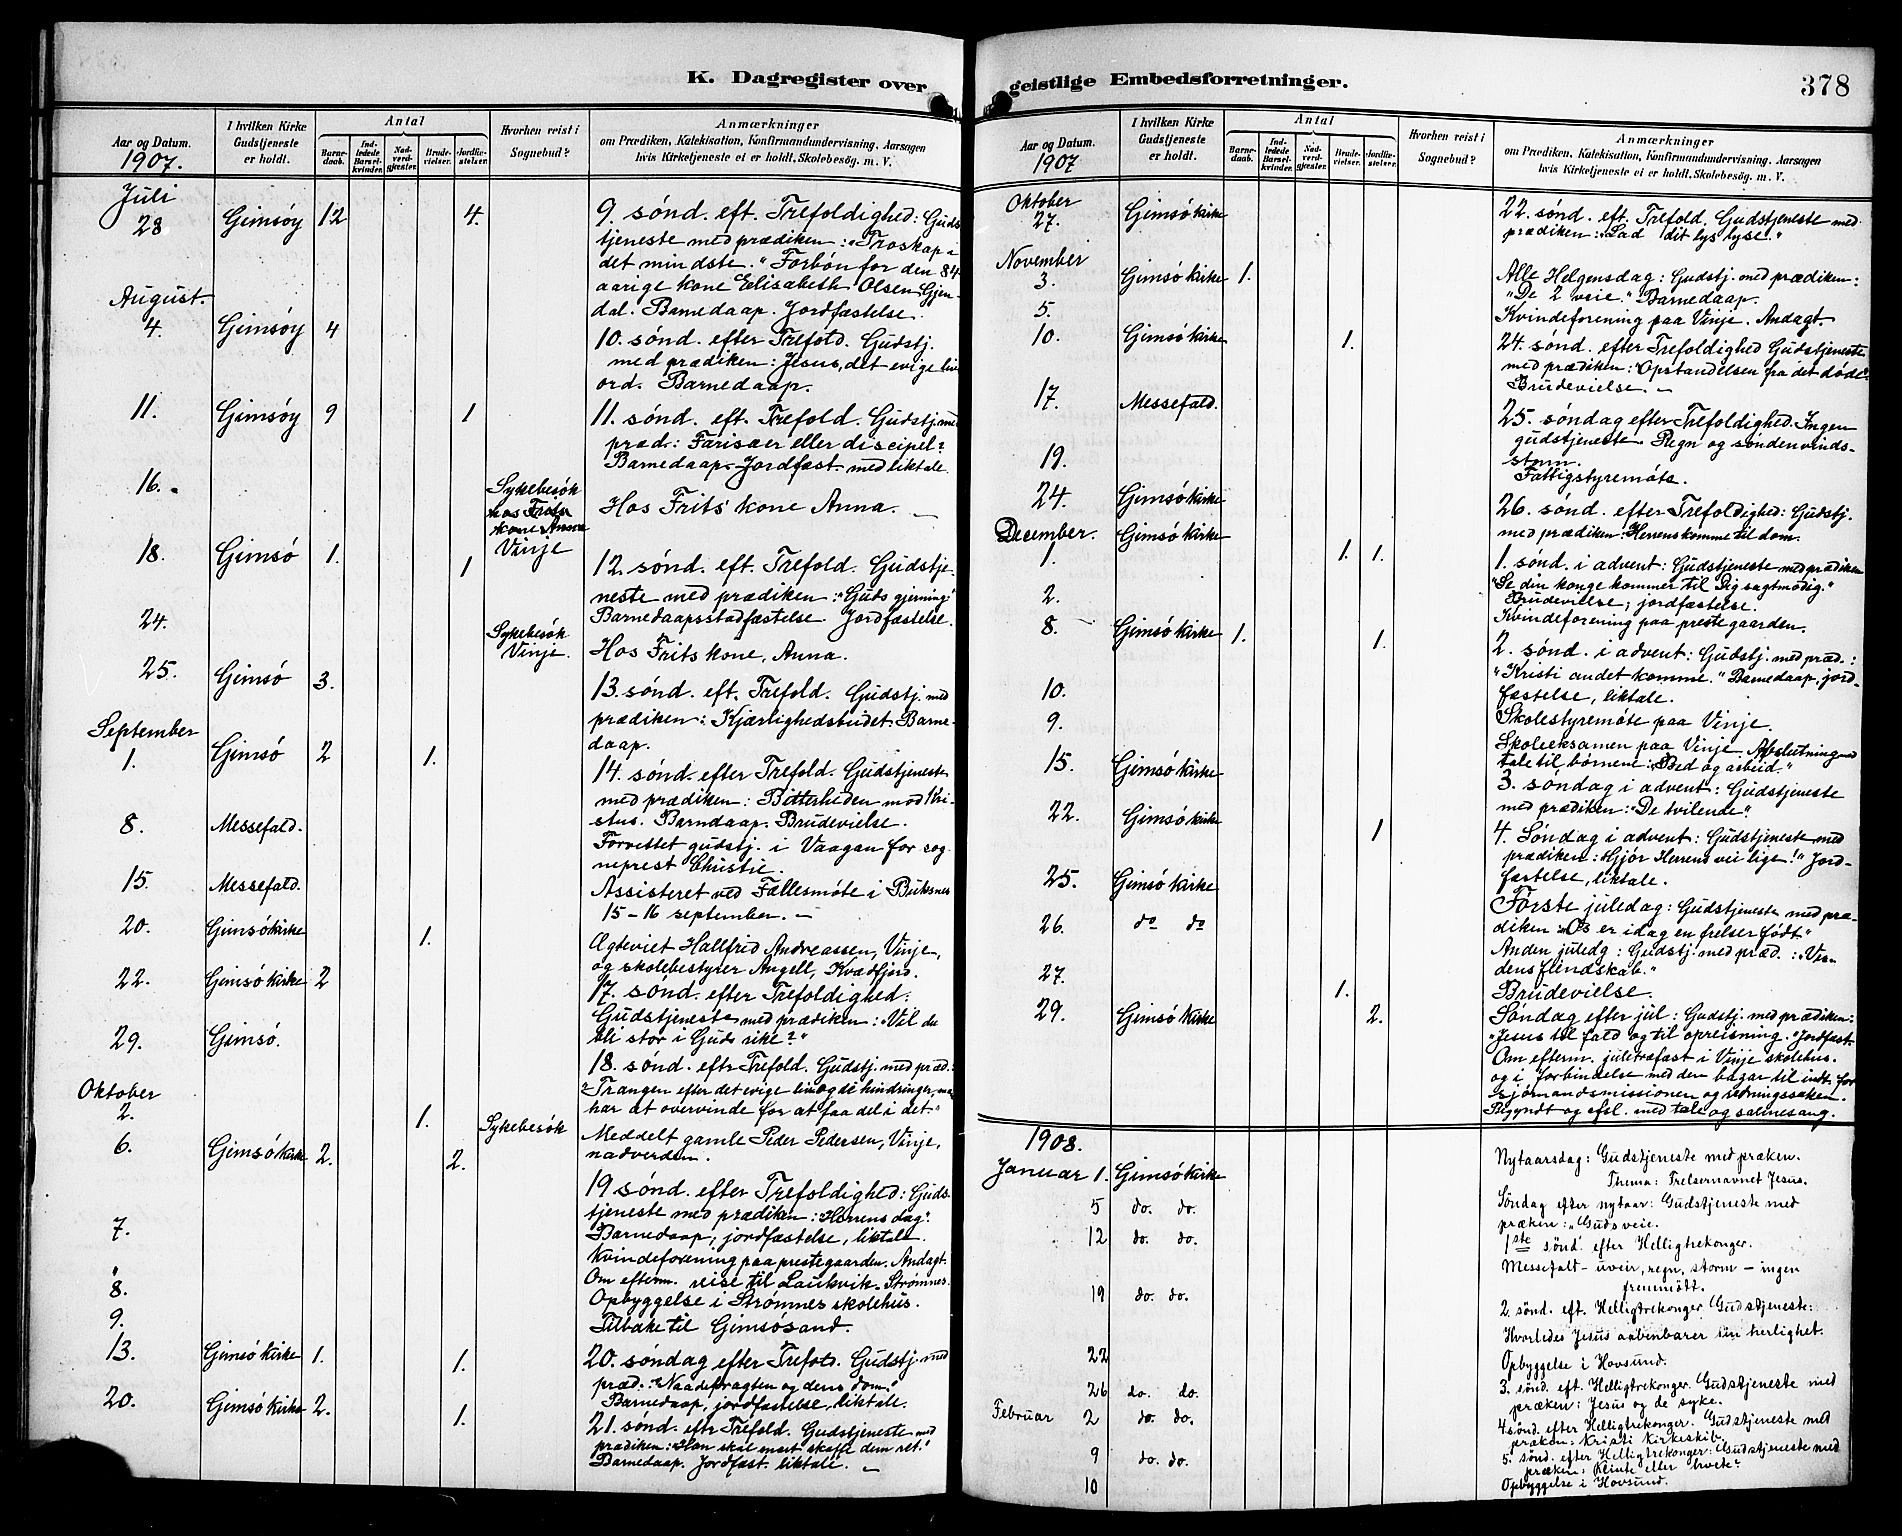 K. Dagregister over
Aar og Datum.
1907.
I hvilken Kirke
Gudstjeneste
er holdt.
Antal
Barne-
daab.
Ind-
ledede
Barsel-
kvinder.
Nad-
verd-
gjæster.
Brude-
vielser.
Jordfæ-
stelser.
Hvorhen reist i
Sognebud?
Anmærkninger
om Prædiken, Katekisation, Konfirmandundervisning, Aarsagen
hvis Kirketjeneste ei er holdt. Skolebesøg. m. V.
Juli
28 Gimsöy 12 4. 9. sönd. eft. Trefoldighed: Guds
tjeneste med prædiken: "Troskap i
det mindste." Forbön for den 84
aarige kone Elisabeth Olsen Gjen-
dal. Barnedaap. Jordfæstelse.
August.
4. Gimsöy 4 10. sönd. efter Trefold. Gudstj.
med prædiken: Jesus, det evige livs
ord. Barnedaap.
11. Gimsöy 9 1 11. sönd. eft. Trefold. Gudstj. med
præd.: Farisæer eller discipel?
Barnedaap. Jordfæst. med liktale.
16. Sykebesök
hos Frits
kone Anna
Vinje
Hos Frits' kone Anna.
18. Gimsö 1. 1 12. sönd. eft. Trefold. Gudstje-
neste med prædiken: "Guds gjerning"
Barnedaapsstadfæstelse. Jordfæstelse.
24. Sykebesök
Vinje.
Hos Frits kone, Anna.
25. Gimsö 3. 13. sönd. eft. Trefold. Gudstj. med
prædiken: Kjærlighedsbudet. Barne-
daap.
September
1. Gimsö 2 1. 14. sönd. efter Trefold. Gudstjeneste
med prædiken: Bitterheden mod Kri-
stus. Barndaap. Brudevielse.
8. Messefald. Forrettet gudstj. i Vaagan for sog
neprest Christie.
15. Messefald. Assisteret ved Fællesmöte i Buksnes
15-16 september.
20. Gimsö kirke 1. Ægteviet Hallfrid Andreassen, Vinje,
og skolebestyrer Angell, Kvædfjord.
22. Gimsö kirke 2 17. sönd. efter Trefoldighed:
Gudstjeneste med prædiken: "Vil du
bli stor i Guds rike?"
29. Gimsö. 18. sönd. eftr Trefold. Gudstj. med præd.:
"Trangen efter det evige liv og de hindringer, ma
har at overvinde for at faa del i det"
Oktober
2. 1. Sykebesök Meddelt gamle Peder Pedersen, Vinje,
nadverden.
6. Gimsö kirke 2. 2. 19 sönd. efter Trefoldighed: Guds-
tjeneste med prædiken: "Herrens dag".
Barnedaap, jordfæstelse, liktale.
7. Kvindeforening paa prestegaarden. Andagt.
8. Om efterm. reise til Laukvik - Strömnes.
Opbyggelse i Strömnes skolehus.
9. Tilbake til Gimsösand.
13. Gimsö kirke 1. 1. 20. söndag efter Trefold. Gudstj. med
præd.: "Naadefragten og dens dom."
Barnedaap, jordfæstelse, liktale.
20. Gimsö Kirke 2. 1. 21. sönd. eftr Trefold. Gudstjeneste med
prædiken: "Han skal snart skaffe dem ret."
Barnedaap. Jordfæst. liktale.
geistlige Embedsforretninger.
378
Aar og Datum.
1907
I hvilken Kirke
Gudstjeneste
er holdt.
Antal
Barne-
daab.
Ind-
ledede
Barsel-
kvinder.
Nad-
verd-
gjæster.
Brude-
vielser.
Jordfæ-
stelser.
Hvorhen reist i
Sognebud?
Anmærkninger
om Prædiken, Katekisation, Konfirmandundervisning, Aarsagen
hvis Kirketjeneste ei er holdt. Skolebesög. m. V.
Oktober
27. Gimsö kirke 22. sönd. eft. Trefold. Gudstjeneste med
prædiken: "Lad dit lys lyse."
November
3. Gimsö kirke 1. Alle Helgensdag: Gudstj. med prædiken:
"De 2 veie." Barnedaap.
5. Kvindeforening paa Vinje. Andagt.
10. Gimsö kirke 1. 24. sönd. efter Trefoldighed Gudstjeneste
med prædiken: "Opstandelsen fra det döde".
Brudevielse.
17. Messefald. 25. söndag efter Trefoldighed. Ingen
gudstjeneste. Regn og söndenvinds-
storm.
19. Fattigstyremöte.
24. Gimsö kirke 26. sönd. efter Trefoldighed: Gudstj.
med prædiken: Herrens komme til dom.
December.
1. Gimsö kirke 1. 1. 1. sönd. i advent: Gudstjeneste med prædiken
"Se din konge kommer til Dig sagtmodig."
Brudevielse; jordfæstelse.
2. Kvindeforening paa prestegaarden.
8. Gimsö kirke 1. 1. 2. sönd. i advent: Gudstj. med præd.:
"Kristi andet komme." Barnedaap, jord-
fæstelse, liktale.
10. Skolestyremöte paa Vinje.
9. Skoleeksamen paa Vinje. Afslutningsmed
tale til börnene: "Bed og arbeid"
15. Gimsö kirke 3. söndag i advent: Gudstjeneste
med prædiken: "De tvilende".
22. Gimsö kirke 1 4. Söndag i advent: Gudstjeneste med
prædiken: "Gjör Herrens vei lige!" Jord-
fæstelse, liktale.
25. Gimsö kirke Förste juledag: Gudstjeneste med præ-
diken "Os er idag en frelser född"
26. do do Anden juledg: Gudstj. med præd.: "Ver-
dens fiendskab."
27. 1. Brudevielse.
29. Gimsö kirke 2. Söndag efter jul: Gudstj. med prædiken:
"Jesus til fald og til opreisning." Jordfæst.
Om efterm. juletræfest i Vinje skolehus.
og i forbindelse med den bazar til indt. for
sjömandsmissionen og redningssaken.
Begyndt og afsl. med tale og salmesang.
1908.
Januar 1. Gimsö kirke Nytaarsdag: Gudstjeneste med præken.
Thema: Frelsernavnet Jesus.
5 do. do. Söndag efter nytaar: Gudstjeneste med
præken: "Guds veie.
12 do. do. 1ste sönd. efter Helligtrekonger.
Messefalt - uveir, regn, storm - ingen
fremmött.
19 do. do. 2 sönd. eft. Helligtrekonger Gudstjeneste:
Hvorledes Jesus aabenbarer sin herlighet.
22 Opbyggelse i Hovsund.
26 do. do. 3. sönd. eft. Helligtrekonger. Gudstjeneste med
præken: Jesus og de syke.
Februar 2 do. do. 4 sönd. efter Helligtrekonger. Gudstjeneste med
præken: Kristi Kirkeskib.
9 do. do. 5. sönd. efter Helligtrekonger: Gudstjeneste med
præken: Klinte eller hvete?
10 Opbyggelse i Hovsund.